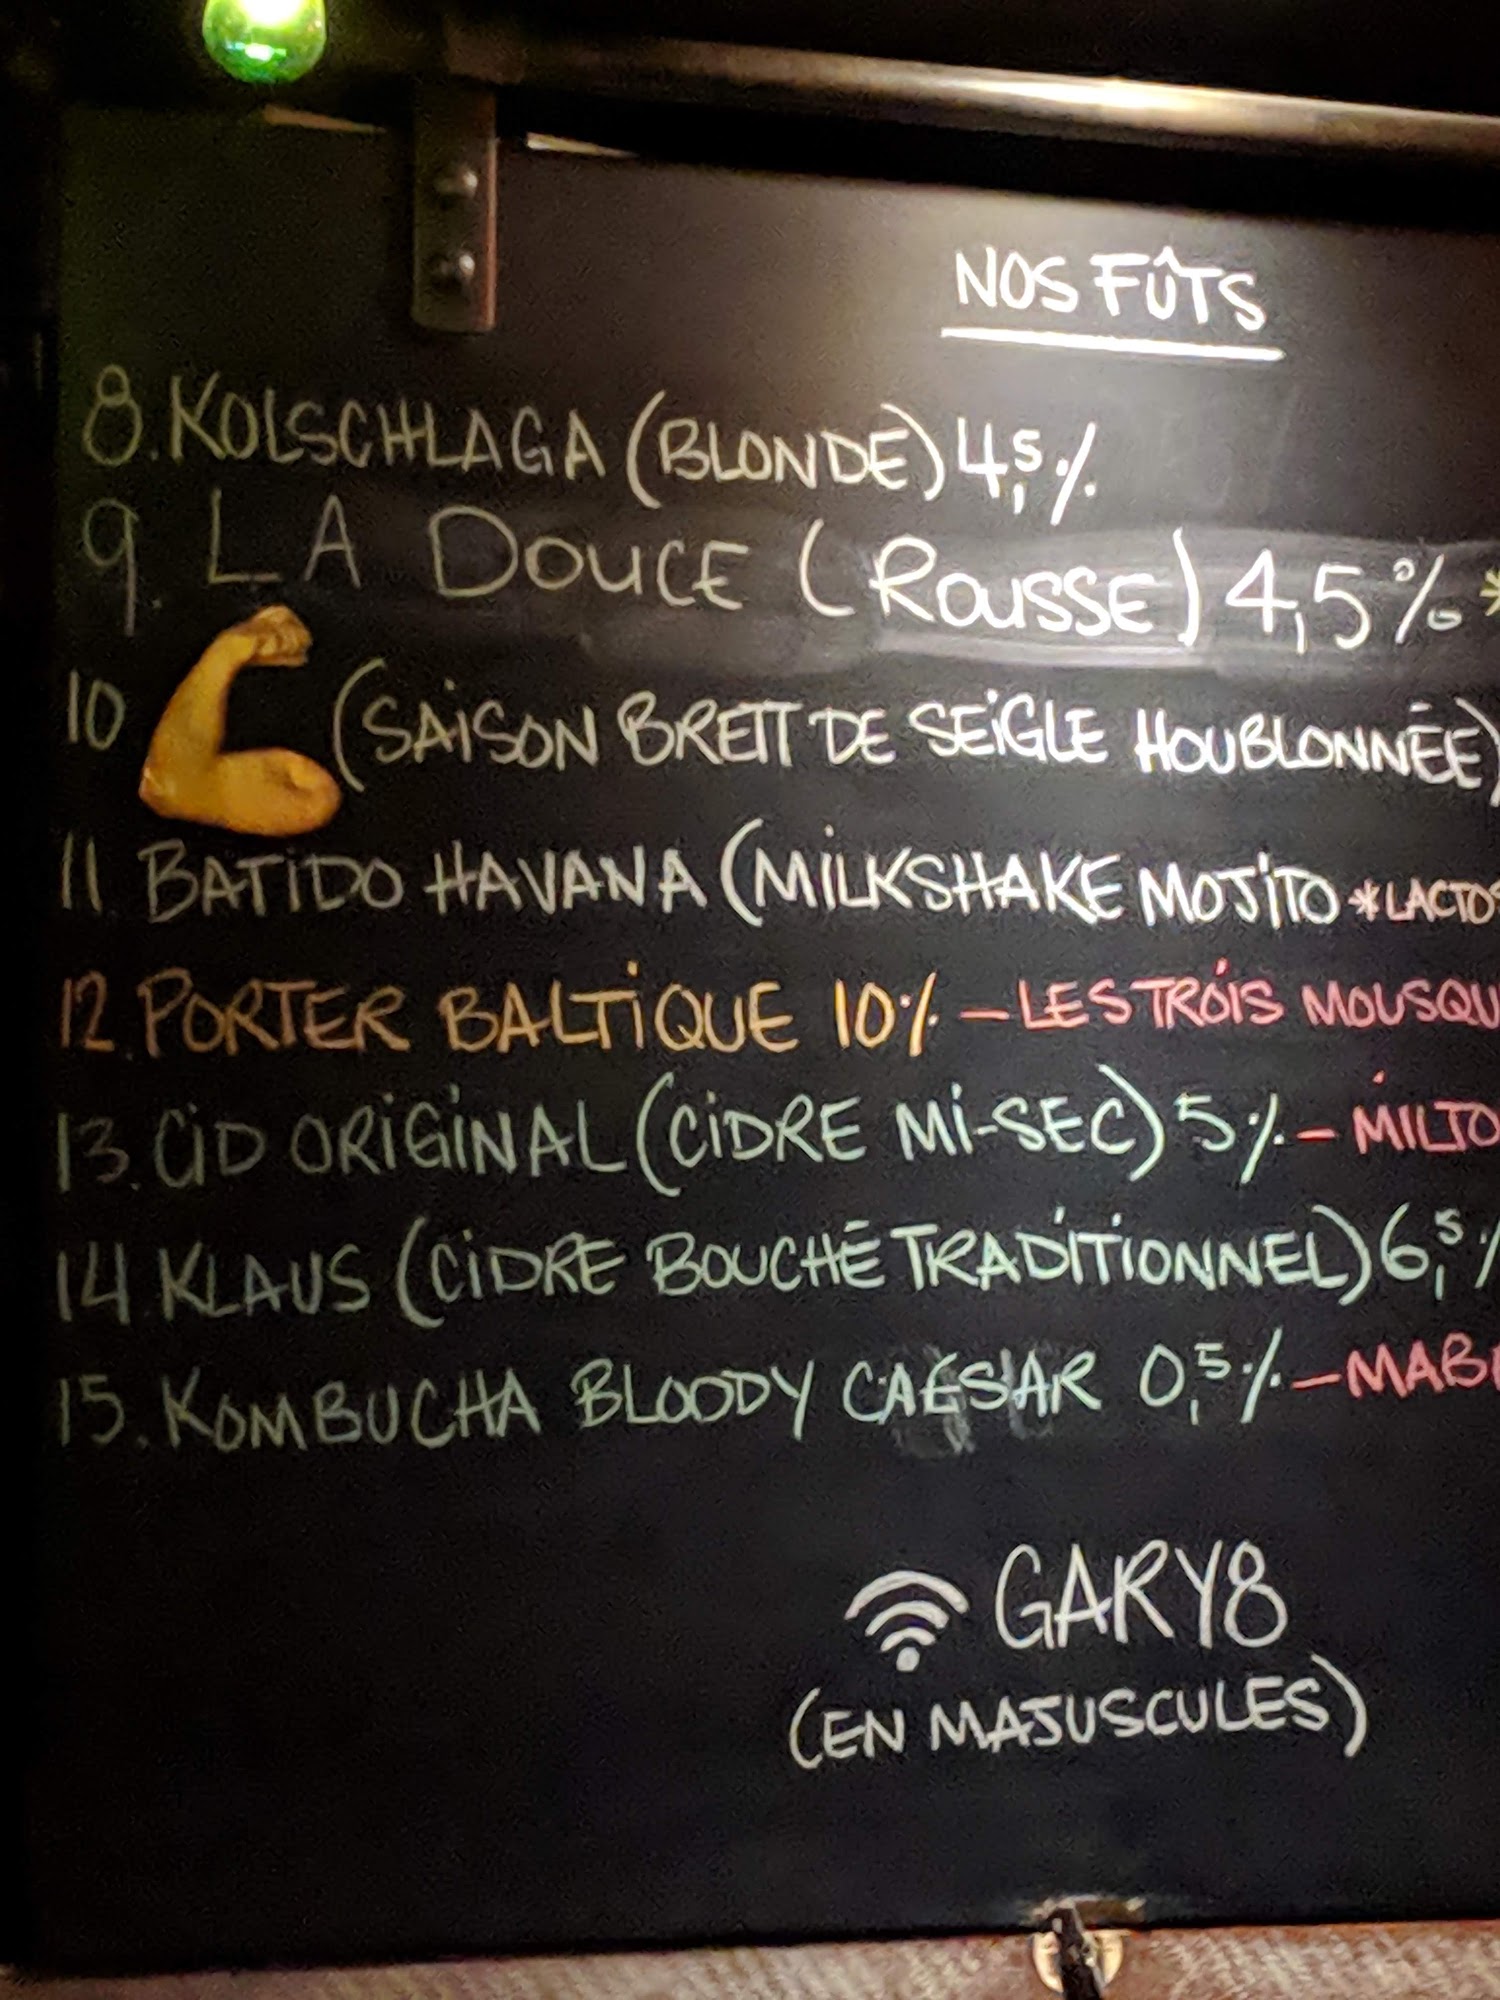 NOS FÛTS
8. KOLSCHLAGA (BLONDE) 4,5%
9. LA DOUCE (ROUSSE) 4,5% *
10 (SAISON BRETT DE SEIGLE HOUBLONNÉE)
11 BATIDO HAVANA (MILKSHAKE MOJITO *LACTOS
12. PORTER BALTIQUE 10% - LES TROIS MOUSQU
13. CID ORIGINAL (CIDRE MI-SEC) 5% - MILTO
14 KLAUS (CIDRE BOUCHÉ TRADITIONNEL) 6,5%
15. KOMBUCHA BLOODY CAESAR 0,5% - MAB
GARY8
(EN MAJUSCULES)